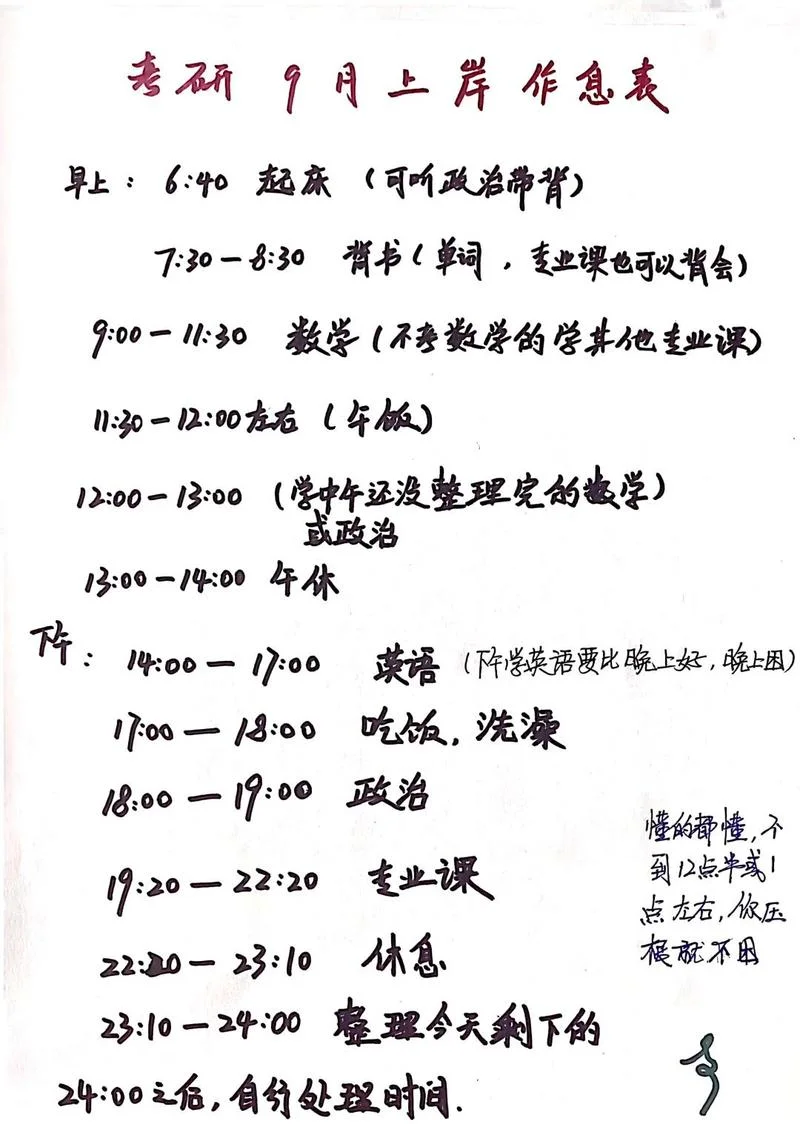 考研 9月上岸 作息表
早上： 6:40 起床（可听政治带背）
7:30－8:30 背书（单词，专业课也可以背会）
9:00－11:30 数学（不考数学的学其他专业课）
11:30－12:00左右（午饭）
12:00－13:00 （学中午还没整理完的数学）
或政治
13:00－14:00 午休
下午： 14:00－17:00 英语（下午学英语要比晚上好，晚上困）
17:00－18:00 吃饭，洗澡
18:00－19:00 政治
19:20－22:20 专业课
22:20－23:10 休息
23:10－24:00 整理今天剩下的
24:00之后，自行处理时间.
懂的都懂，不
到12点半或1
点左右，你压
根就不困